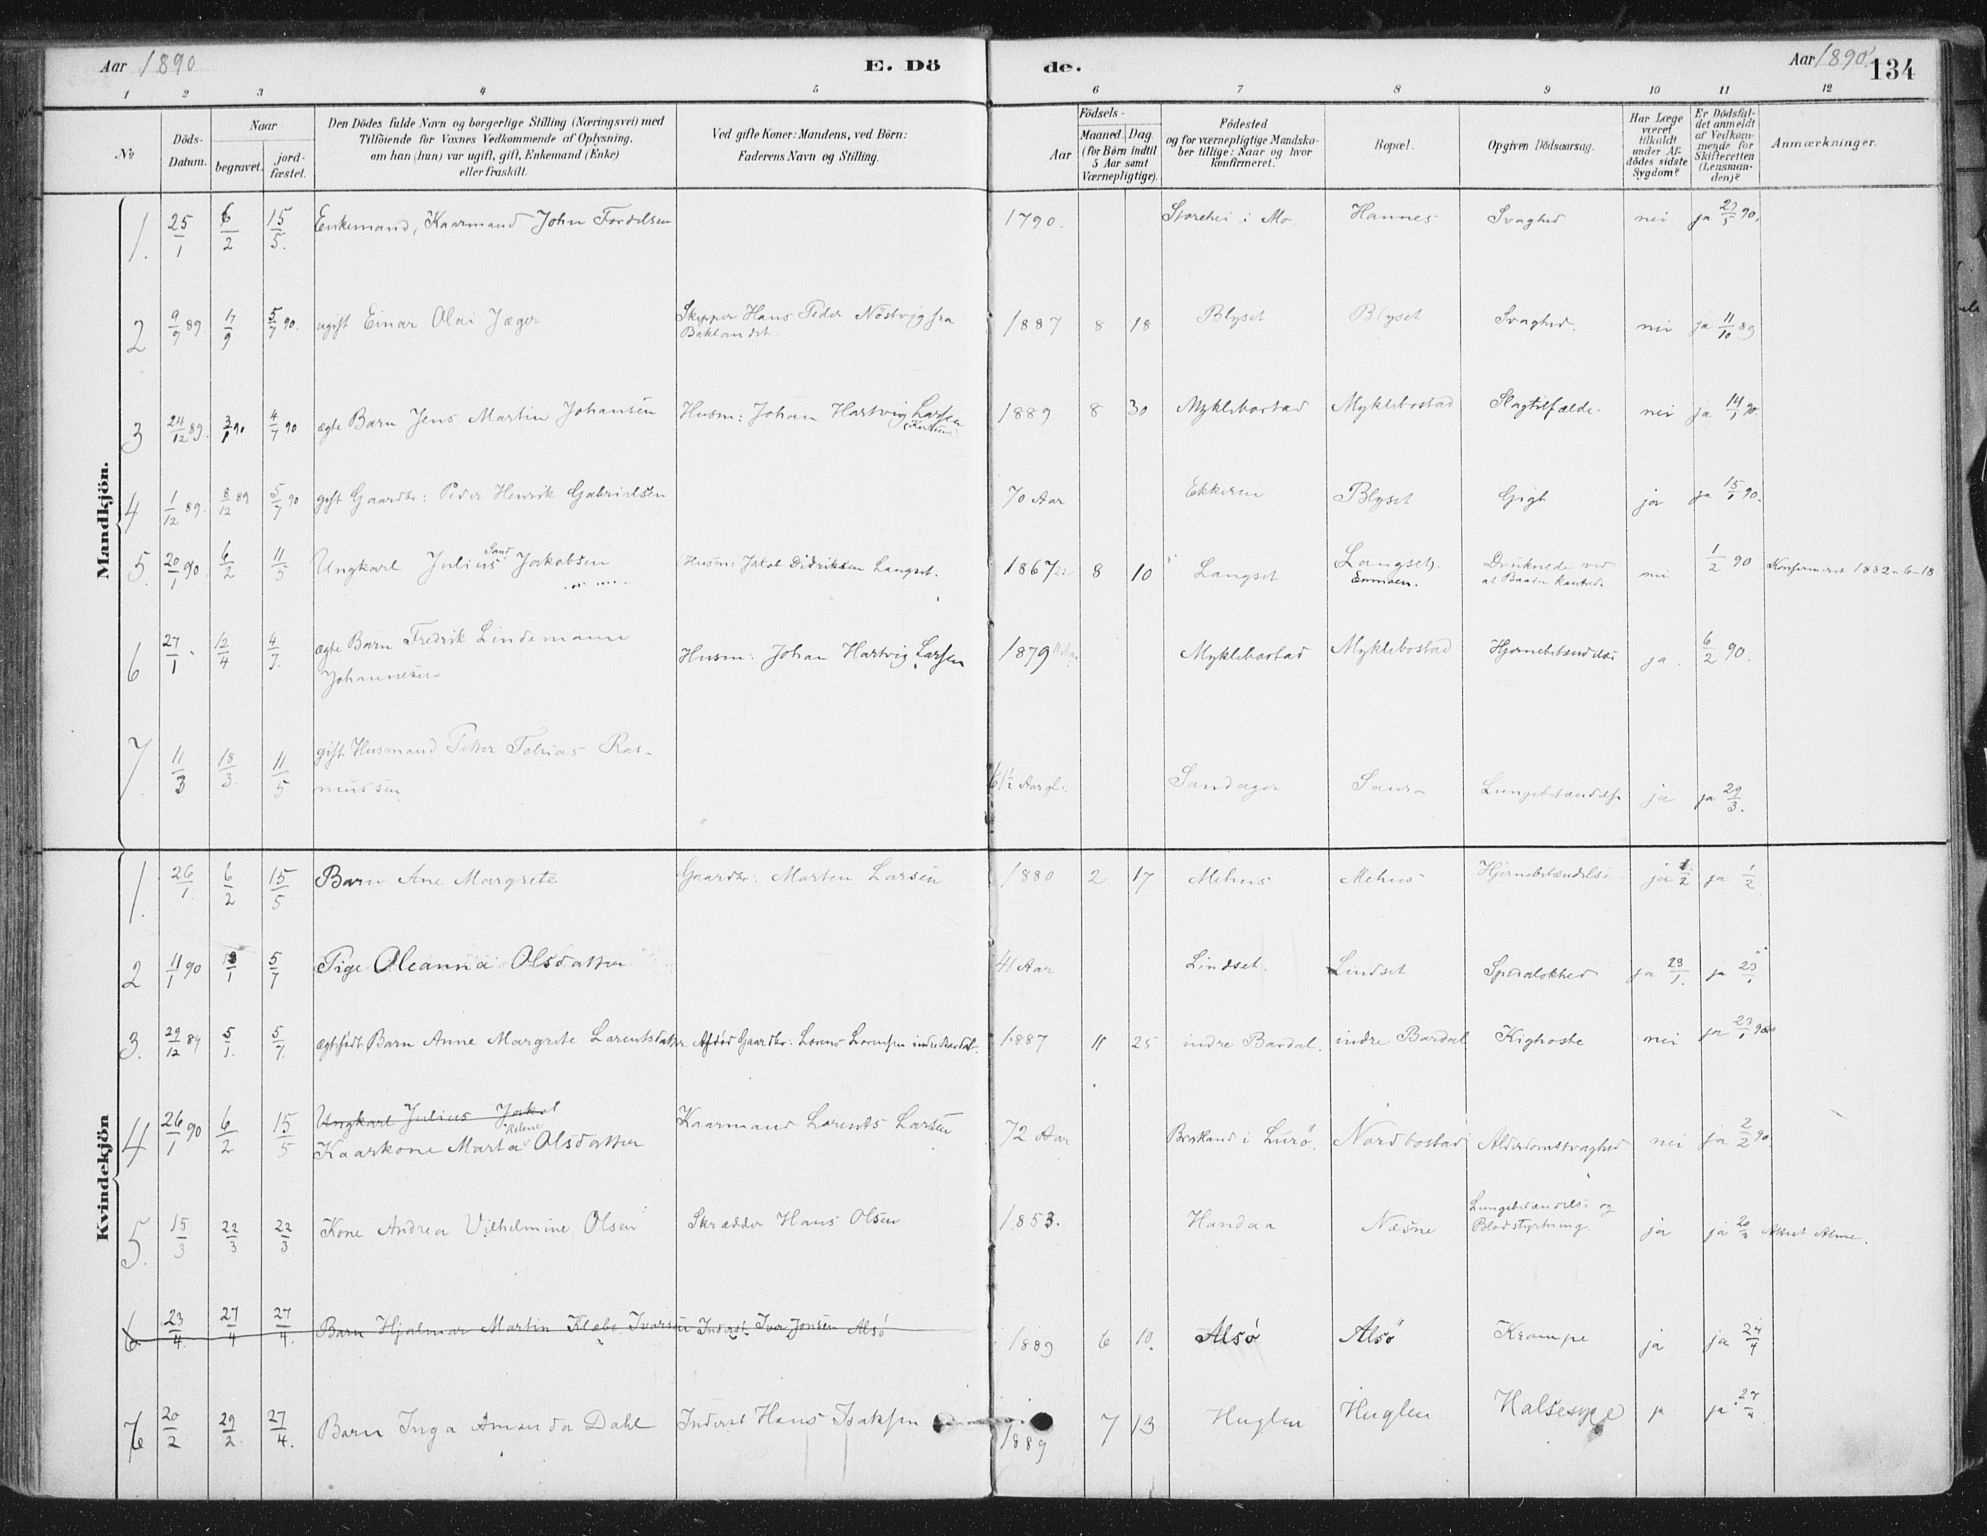 Aar 1890 E. Dö de. Aar 1890. 134
1 2 3 4 5 6 7 8 9 10 11 12
No
Döds-Datum.
Naar
begravet.
jordfæstet.
Den Dödes fulde Navn og borgerlige Stilling (Næringsvei) med
Tilföiende for Voxnes Vedkommende af Oplysning,
om han (hun) var ugift, gift, Enkemand (Enke)
eller fraskilt.
Ved gifte Koner: Mandens, ved Börn:
Faderens Navn og Stilling.
Födsels-
Aar
Maaned. Dag.
(for Börn indtil
5 Aar samt
Værnepligtige).
Födested
og for værnepligtige Mandskaber tillige: Naar og hvor
konfirmeret.
Bopæl.
Opgiven Dödsaarsag.
Har Læge
været
tilkaldt
under Afdödes sidste
Sygdom?
Er Dödsfaldet anmeldt
af Vedkommende for
Skifteretten
(Lensmanden)?
Anmærkninger.
Mandkjön.
1. 25/1 6/2 15/5. Enkemand, Kaarmand John 1790. i Mo Hannes Svaghed nei ja 27/5 90.
2 9/9 89. 17/9 5/7 90. ugift Einar Olai Jæger Skipper Hans Peder Nöstvig fra 1887 8 18 Blyset Blyset Svaghed. nei ja 11/10 89
Baklandet.
3 24/12 89. 3/1 90 4/7 90 ægte Barn Jens Martin Johansen Husm: Johan Hartvig Larsen 1889 8 30 Myklebostad Myklebostad Slagtilfælde. nei ja 14/1 90
4 1/12 89. 8/12 89 5/7 90 gift Gaardbr: Peder Henrik Gabrielsen 70 Aar Blyset Gigt ja ja 15/1 90.
5. 20/1 90. 6/2 11/5 Ungkarl Julius Sand Jakobsen Husm: Jakob Didriksen Langset. 1867 8 10 Langset Langset Druknede ved nei 1/2 90 Konfirmeret 1882-6-18
at Baaten kantrede
6 27/1 12/4 4/7. ægte Barn Fredrik Lindemann Husm: Johan Hartvig Larsen 1879 Myklebostad Myklebostad Hjernebetændelse ja. 6/2 90.
Johannesen
7. 11/3 18/3. 11/5 gift Husmand Petter Tobias Ras-
mussen 61½ Aar gl. Sandager Saura Lungebetændelse ja ja 29/3.
Kvindekjön
1. 26/1. 6/2 15/5 Barn Ane Margrete Gaardbr: Morten Larsen 1880 2 17 Mehus Mehus Hjernebetændelse ja 1/2 ja 1/2
2 11/1 90 5/7 Pige Oleanna Olsdatter 41 Aar Lindset. Lindset Spedalskhed ja 23/1. ja 23/1
3. 29/12 89 5/1. 5/7. ægtefödt Barn Anne Margrete Larentsdatter Afdöd Gaardbr: Lorens Lorensen indre Bardal. 1887 11 25 indre Bardal. indre Bardal Kighoste nei ja 23/1 90
4 26/1 90 6/2 15/5 Ungkarl Julius Jakob
Kaarkone Marta Helene Olsdatter Kaarmand Lorents Larsen 72 Aar i Lurö. Nordbostad Alderdomssvaghed nei ja 2/2 90.
5. 15/3 22/3 22/3. Kone Andrea Vilhelmine Olsen Skrædder Hans Olsen 1853. Handaa Næsne Lungebetændelse og
Blodstyrtning ja ja
6. 23/4. 27/4 27/4. Barn Hjalmar Martin Klæbo Ivarsen Inderst Iver Jonsen Alsö 1889 6 10. Alsö Alsö Krampe ja ja 24/4
6 20/2 29/2. 27/4. Barn Inga Amanda Dahl Inderst Hans Isaksen 1889 7 13 Huglen Huglen Halsesyge ja ja 27/4